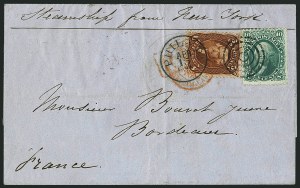 Steamship from New York
PHIL
10
Monsieur Bouvet jeune
Bordeaux
France